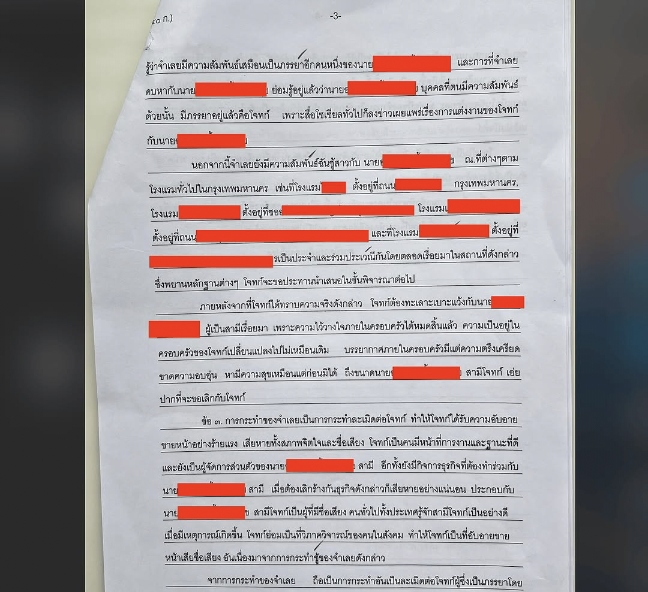 -3-
รู้ว่าจำเลยมีความสัมพันธ์เสมือนเป็นภรรยาอีกคนหนึ่งของนาย และการที่จำเลย
คบหากับนาย ย่อมรู้อยู่แล้วว่านาย บุคคลที่ตนมีความสัมพันธ์
ด้วยนั้น มีภรรยาอยู่แล้วคือโจทก์ เพราะสื่อโซเชียลทั่วไปก็ลงข่าวเผยแพร่เรื่องการแต่งงานของโจทก์
กับนาย
นอกจากนี้จำเลยยังมีความสัมพันธ์ฉันชู้สาวกับ นาย ณ.ที่ต่างๆตาม
โรงแรมทั่วไปในกรุงเทพมหานคร เช่นที่โรงแรม ตั้งอยู่ที่ถนน กรุงเทพมหานคร,
โรงแรม ตั้งอยู่ที่ซอย โรงแรม
ตั้งอยู่ที่ถนน และที่โรงแรม ตั้งอยู่ที่
เป็นประจำและร่วมประเวณีกันโดยตลอดเรื่อยมาในสถานที่ดังกล่าว
ซึ่งพยานหลักฐานต่างๆ โจทก์จะขอประทานนำเสนอในชั้นพิจารณาต่อไป
ภายหลังจากที่โจทก์ได้ทราบความจริงดังกล่าว โจทก์ต้องทะเลาะเบาะแว้งกับนาย
ผู้เป็นสามีเรื่อยมา เพราะความไว้วางใจภายในครอบครัวได้หมดสิ้นแล้ว ความเป็นอยู่ใน
ครอบครัวของโจทก์เปลี่ยนแปลงไปไม่เหมือนเดิม บรรยากาศภายในครอบครัวมีแต่ความตรึงเครียด
ขาดความอบอุ่น หามีความสุขเหมือนแต่ก่อนมิได้ ถึงขนาดนาย สามีโจทก์ เอ่ย
ปากที่จะขอเลิกกับโจทก์
ข้อ ๓. การกระทำของจำเลยเป็นการกระทำละเมิดต่อโจทก์ ทำให้โจทก์ได้รับความอับอาย
ขายหน้าอย่างร้ายแรง เสียหายทั้งสภาพจิตใจและชื่อเสียง โจทก์เป็นคนมีหน้าที่การงานและฐานะที่ดี
และยังเป็นผู้จัดการส่วนตัวของนาย สามี อีกทั้งยังมีกิจการธุรกิจที่ต้องทำร่วมกับ
นาย สามี เมื่อต้องเลิกร้างกันธุรกิจดังกล่าวก็เสียหายอย่างแน่นอน ประกอบกับ
นาย สามีโจทก์เป็นผู้ที่มีชื่อเสียง คนทั่วไปทั้งประเทศรู้จักสามีโจทก์เป็นอย่างดี
เมื่อมีเหตุการณ์เกิดขึ้น โจทก์ย่อมเป็นที่วิภาควิจารณ์ของคนในสังคม ทำให้โจทก์เป็นที่อับอายขาย
หน้าเสียชื่อเสียง อันเนื่องมาจากการกระทำชู้ของจำเลยดังกล่าว
จากการกระทำของจำเลย ถือเป็นการกระทำอันเป็นละเมิดต่อโจทก์ผู้ซึ่งเป็นภรรยาโดย